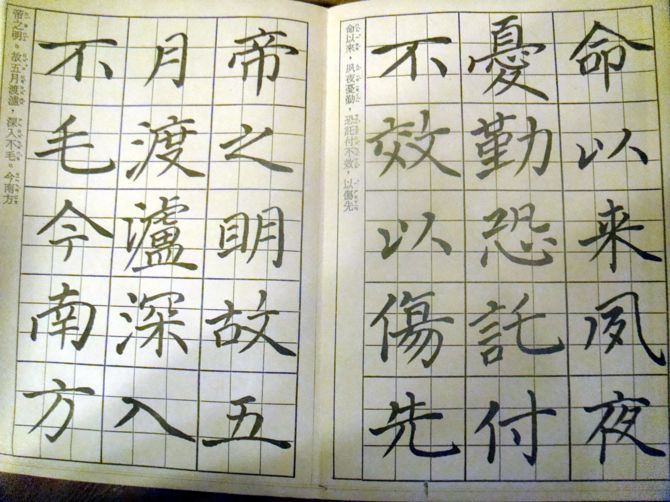 命以来夙夜
憂勤恐託付
不效以傷先
命以來，夙夜憂勤，恐託付不效，以傷先
帝之明故五
月渡瀘深入
不毛今南方
帝之明。故五月渡瀘，深入不毛。今南方